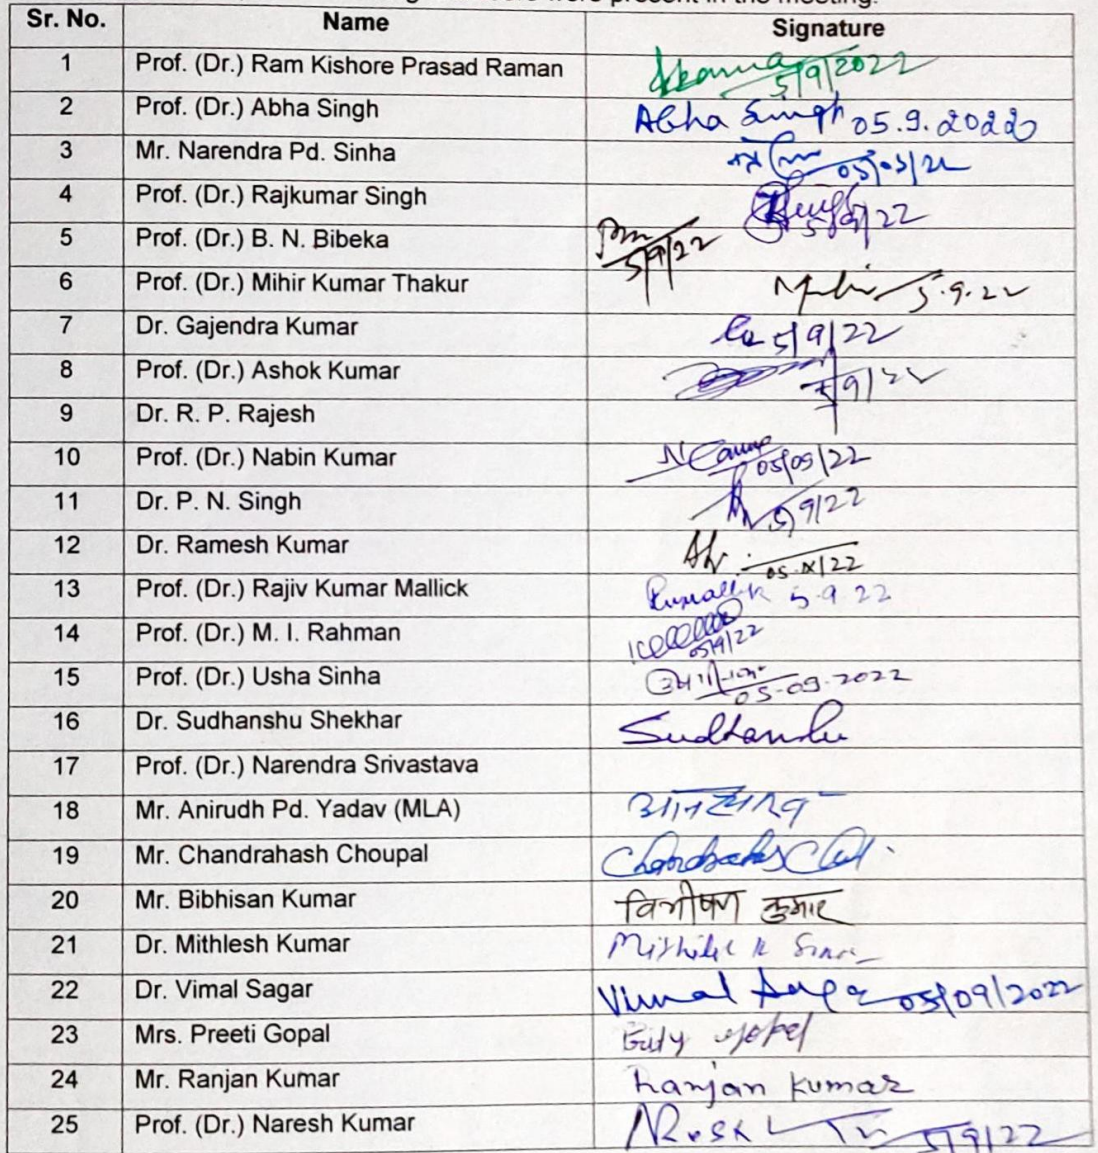 were present in the meeting.
Sr. No. Name Signature
1 Prof. (Dr.) Ram Kishore Prasad Raman 5/9/2022
2 Prof. (Dr.) Abha Singh Abha Singh 05.9.2022
3 Mr. Narendra Pd. Sinha
4 Prof. (Dr.) Rajkumar Singh 5/9/22
5 Prof. (Dr.) B. N. Bibeka 5/9/22
6 Prof. (Dr.) Mihir Kumar Thakur Mihir 5.9.22
7 Dr. Gajendra Kumar 5/9/22
8 Prof. (Dr.) Ashok Kumar 5/9/22
9 Dr. R. P. Rajesh
10 Prof. (Dr.) Nabin Kumar 05/09/22
11 Dr. P. N. Singh 5/9/22
12 Dr. Ramesh Kumar
13 Prof. (Dr.) Rajiv Kumar Mallick 5.9.22
14 Prof. (Dr.) M. I. Rahman 05/9/22
15 Prof. (Dr.) Usha Sinha 05-09-2022
16 Dr. Sudhanshu Shekhar Sudhanshu
17 Prof. (Dr.) Narendra Srivastava
18 Mr. Anirudh Pd. Yadav (MLA)
19 Mr. Chandrahash Choupal
20 Mr. Bibhisan Kumar विभीषण कुमार
21 Dr. Mithlesh Kumar
22 Dr. Vimal Sagar Vimal Sagar 05/09/2022
23 Mrs. Preeti Gopal Gopal
24 Mr. Ranjan Kumar Ranjan Kumar
25 Prof. (Dr.) Naresh Kumar 5/9/22